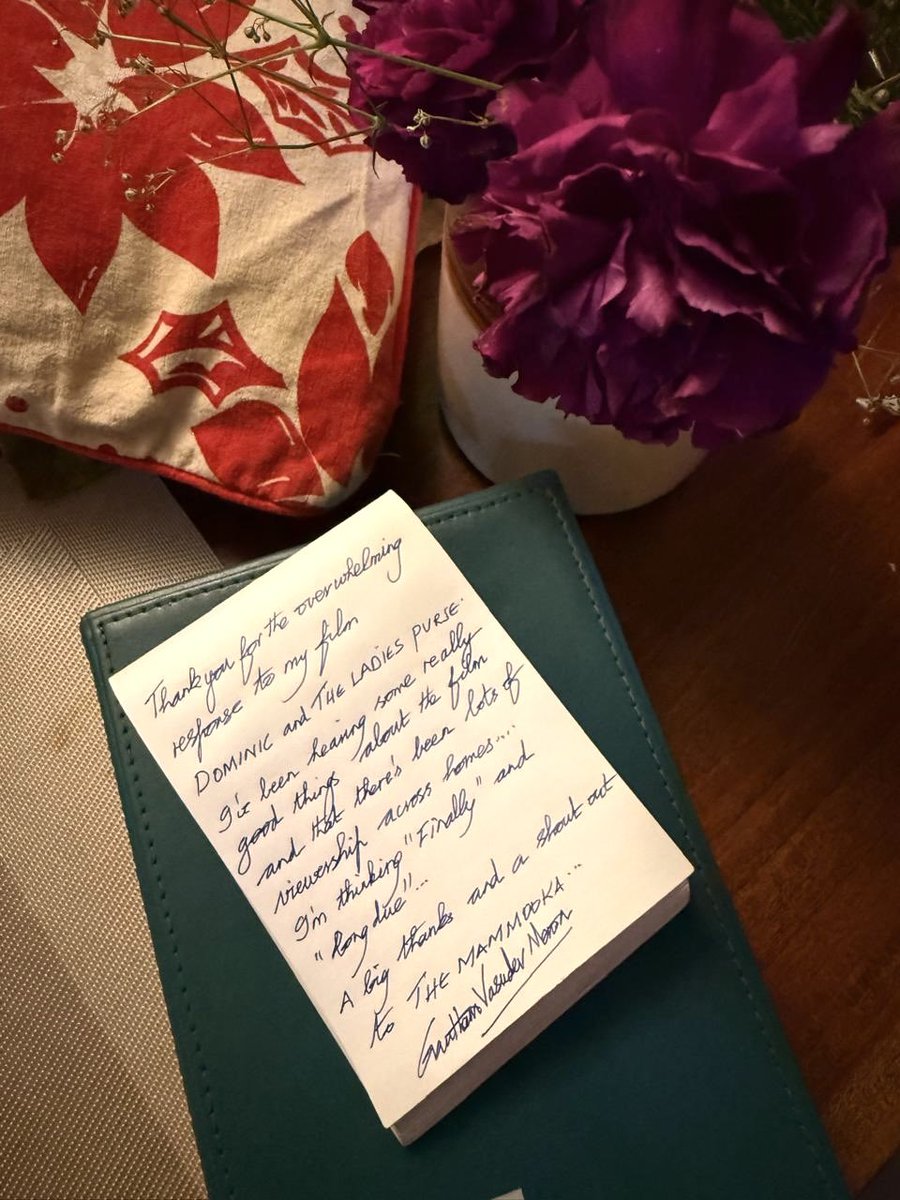 Thank you for the overwhelming
response to my film
DOMINIC and THE LADIES PURSE.
I've been hearing some really
good things about the film
and that there's been lots of
viewership across homes....
I'm thinking "Finally" and
"Long due"...
A big thanks and a shout out
to THE MAMMOOKA...
Gautham Vasudev Menon